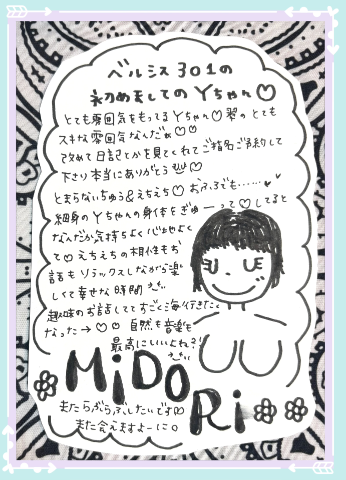 ベルシス301の
初めましてのYちゃん♡
とても雰囲気をもってるYちゃん♡翠のとても
スキな雰囲気なんだぁ♡♡
改めて日記とかを見てくれてご指名ご予約して
下さり本当にありがとう♡
とまらないちゅう&えちえち♡おふろでも……
細身のYちゃんの身体をぎゅーって♡してると
なんだか気持ちよく心地よく
て♡えちえちの相性もお
話もリラックスしながら楽
しくて幸せな時間
趣味のお話してて すごく海行きたく
なった→♡♡ 自然も音楽も
最高にいいよね?!
MiDORi
またらぶらぶしたいです♡
また会えますよーに。